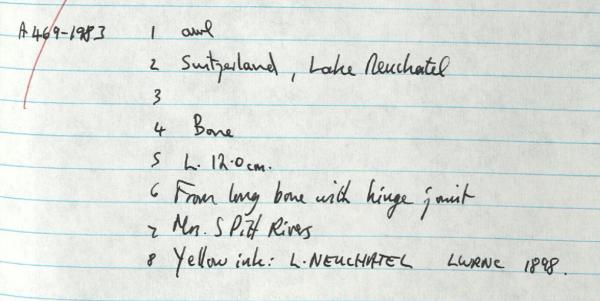 A 469-1983 1 awl
2 Switzerland, Lake Neuchatel
3
4 Bone
5 L. 12.0 cm.
6 From long bone with hinge joint
7 Mrs. S Pitt Rivers
8 Yellow ink: L. NEUCHATEL LWRNC 1898.